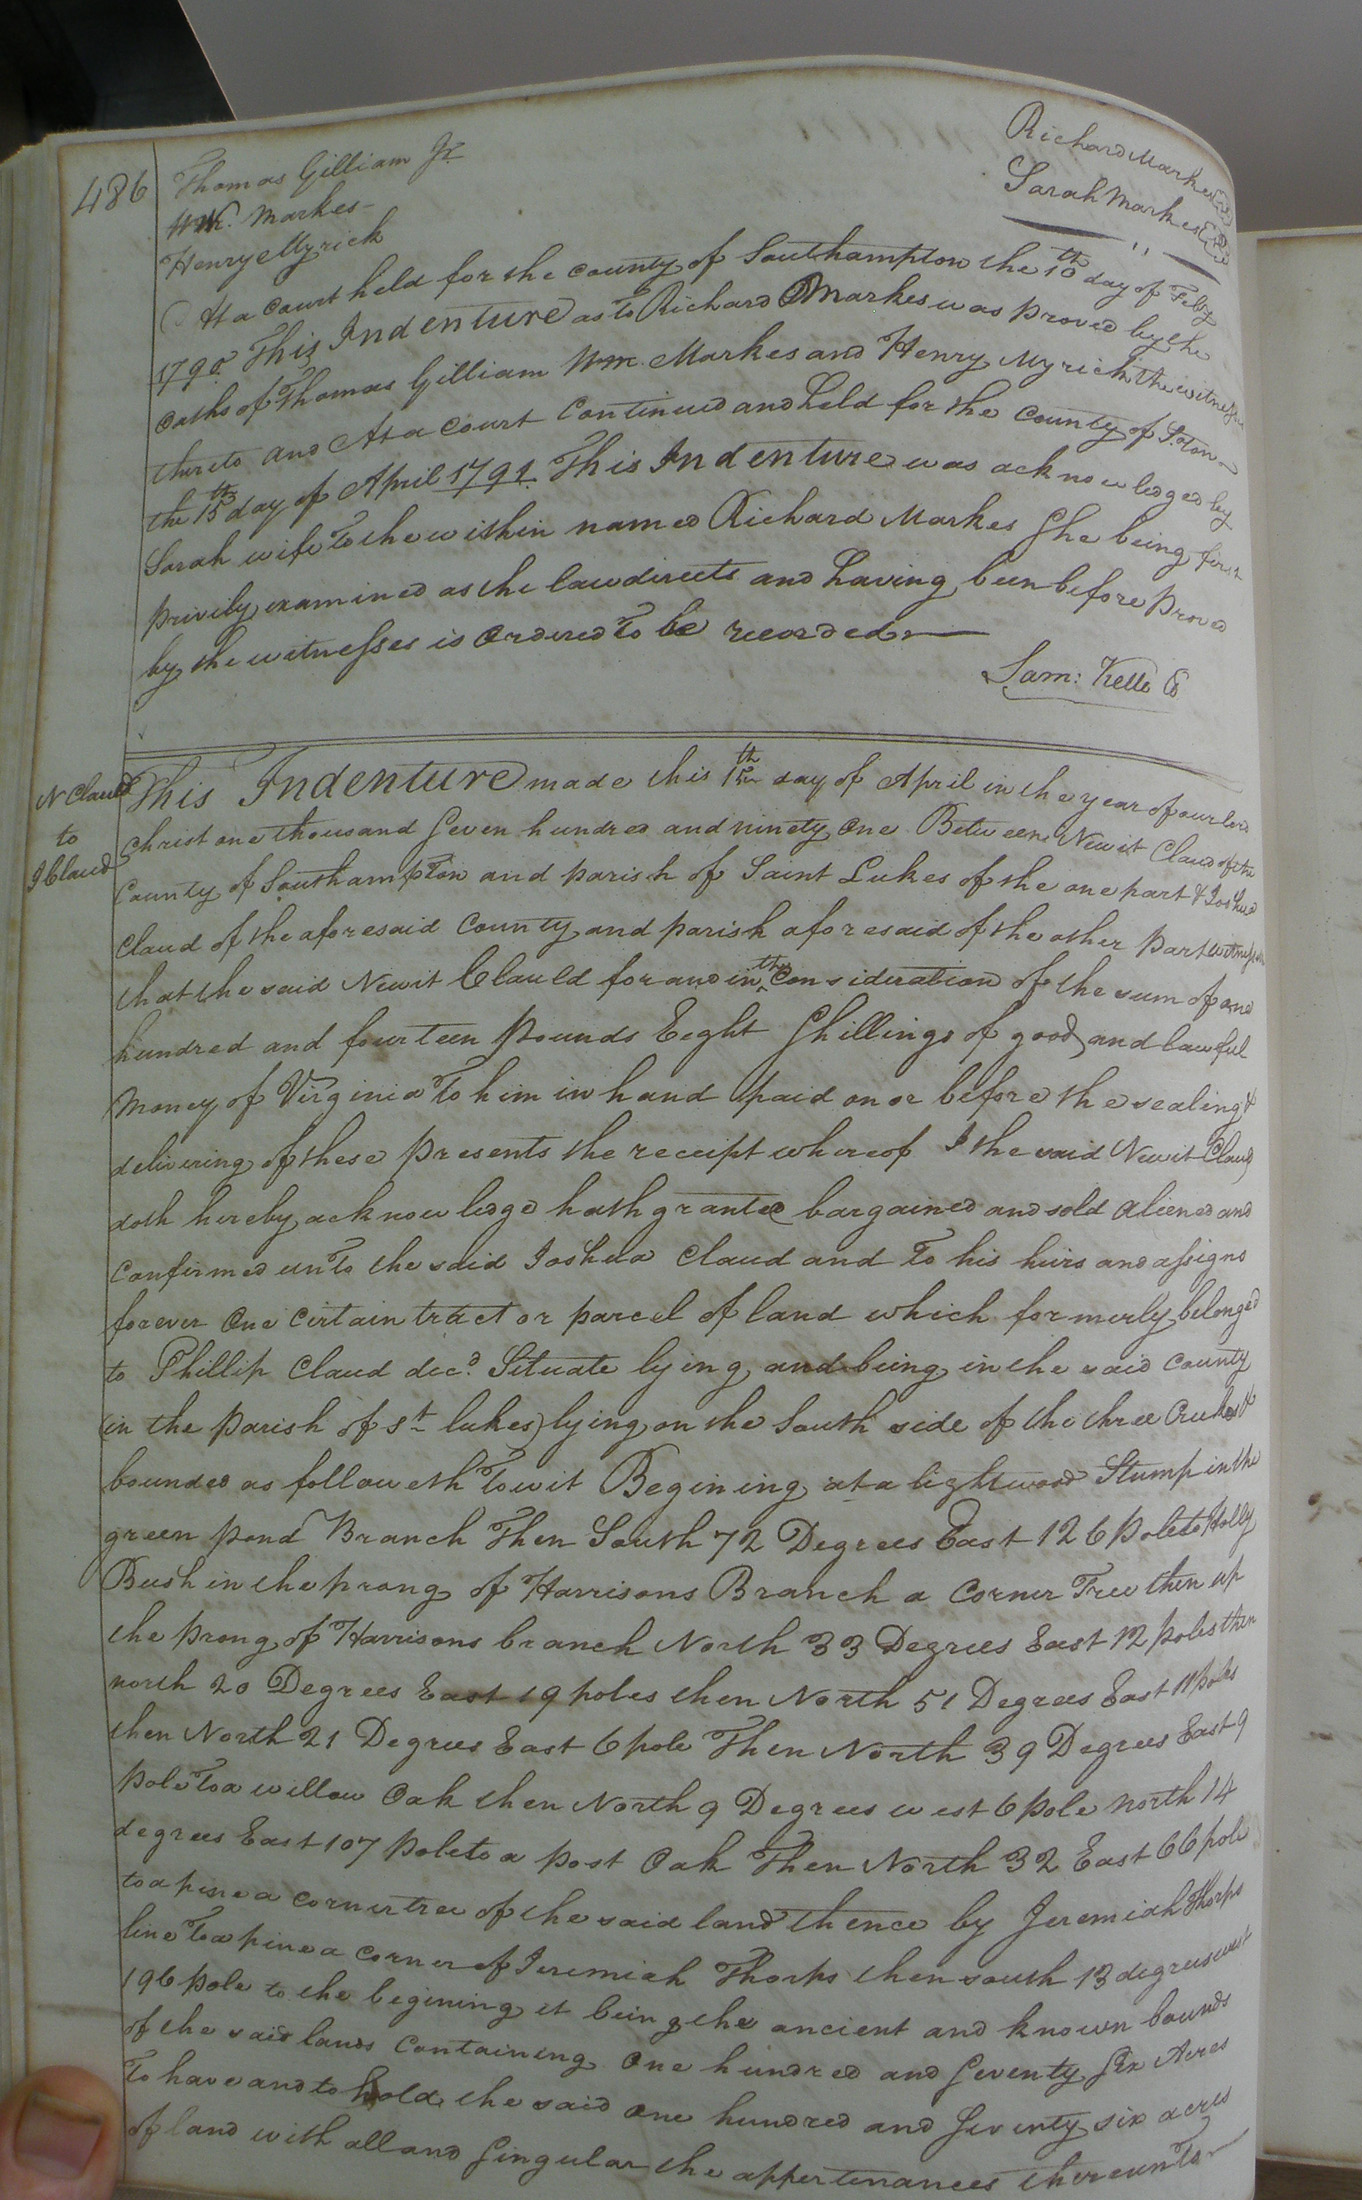 486
Thomas Gilliam Jr
Wm. Markes
Henry Myrick
Richard Markes
Sarah Markes
At a Court held for the County of Southampton the 10th day of Feby
1790 This Indenture as to Richard Markes was proved by the
oaths of Thomas Gilliam Wm. Markes and Henry Myrick the witnesses
thereto and At a Court Continued and held for the County of Soton
the 15th day of April 1791 This Indenture was acknowledged by
Sarah wife To the within named Richard Markes She being first
privily examined as the law directs and having been before proved
by the witnesses is Ordered To be recorded
Sam: Kello
N Claud
to
J Claud
This Indenture made this 15th day of April in the year of our lord
Christ one thousand Seven hundred and ninety One Between Newit Claud of the
County of Southampton and parish of Saint Lukes of the one part & Joshua
Claud of the aforesaid County and parish aforesaid of the other part witnesseth
that the said Newit Clauld for and in the Consideration of the sum of one
hundred and fourteen pounds Eeght Shillings of good and lawful
money of Virginia To him in hand paid on or before the sealing &
delivering of these presents the receipt whereof I the said Newit Claud
doth hereby acknowledge hath granted bargained and sold aliened and
Confirmed unTo the said Joshua Claud and To his heirs and assigns
forever One Certain tract or parcel of land which formerly belonged
to Phillip Claud decd. Situate lying and being in the said County
(in the parish of St lukes) lying on the South side of the three Creeks &
bounded as followeth To wit Begining at a lightwood Stump in the
green pond Branch Then South 72 Degrees East 126 pole to Holly
Bush in the prong of Harrisons Branch a Corner Tree then up
the prong of Harrisons branch North 33 Degrees East 12 poles then
north 20 Degrees East 19 poles then North 51 Degrees East 11 poles
then North 21 Degrees East 6 pole Then North 39 Degrees East 9
pole To a willow Oak then North 9 Degrees west 6 pole north 14
degrees East 107 pole to a post Oak Then North 32 East 66 pole
to a pine a corner tree of the said land thence by Jeremiah Thorps
line To a pine a corner of Jeremiah Thorps then south 13 degrees west
196 pole to the begining it being the ancient and known bounds
of the said lands Containing One hundred and Seventy Six Acres
To have and to hold the said one hundred and Seventy six acres
of land with all and Singular the appertenances thereunto